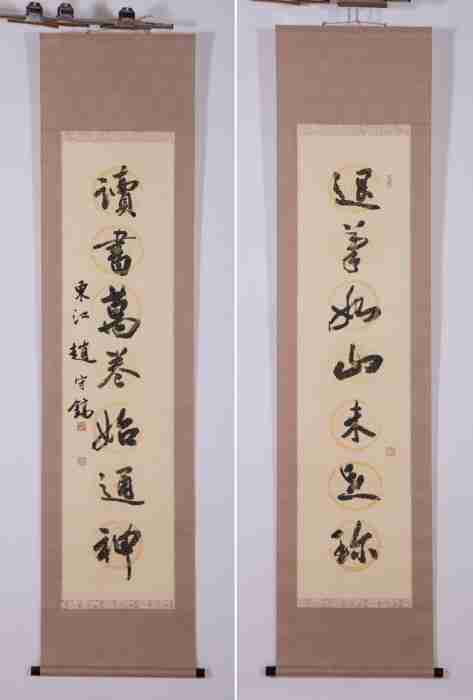 退筆如山未足珍
讀書萬卷始通神
東江 趙守鎬